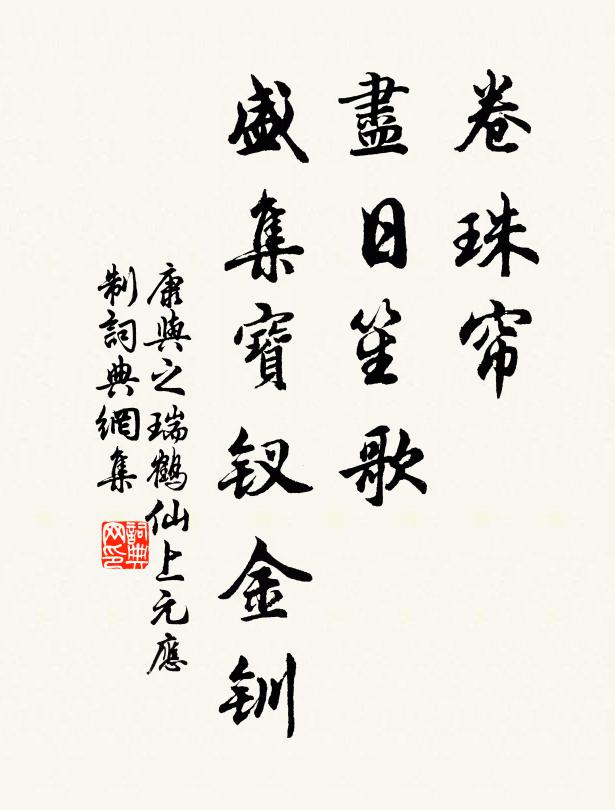 卷珠帘
盡日笙歌
盛集寶钗金钏
康與之瑞鶴仙上元應
制詞典網集
詞典
网印